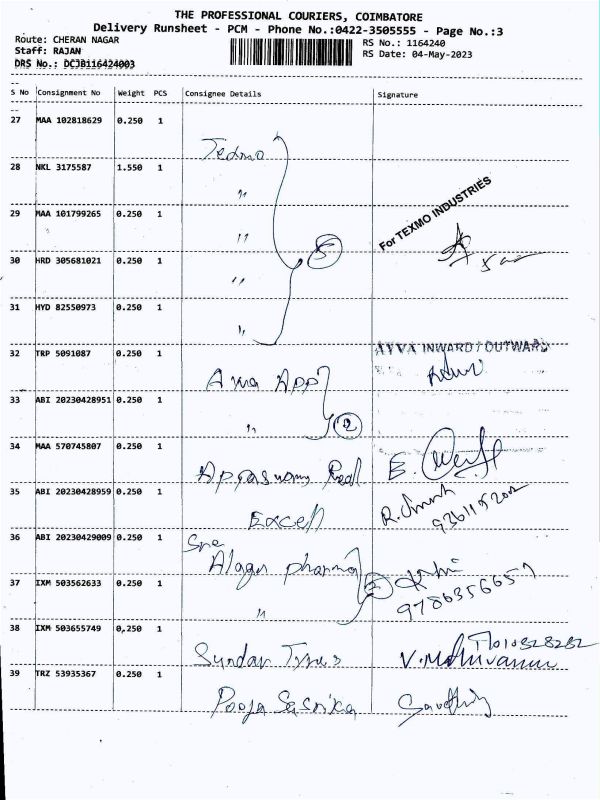 THE PROFESSIONAL COURIERS, COIMBATORE
Delivery Runsheet - PCM - Phone No.:0422-3505555 - Page No.:3
Route: CHERAN NAGAR
RS No.: 1164240
Staff: RAJAN
RS Date: 04-May-2023
DRS No.: DCJB116424003
S No Consignment No Weight PCS Consignee Details Signature
27 MAA 102818629 0.250 1
Texmo
28 NKL 3175587 1.550 1
"
29 MAA 101799265 0.250 1
"
For TEXMO INDUSTRIES
5
30 HRD 305681021 0.250 1
"
31 HYD 82550973 0.250 1
"
32 TRP 5091087 0.250 1
AVVA INWARD / OUTWARD
App
33 ABI 20230428951 0.250 1
" 2
34 MAA 570745807 0.250 1
Appaswamy Real
35 ABI 20230428959 0.250 1
Excell
36 ABI 20230429009 0.250 1
Sree
Alagar pharma
37 IXM 503562633 0.250 1
" 2
38 IXM 503655749 0.250 1
Sundar
39 TRZ 53935367 0.250 1
Pooja Sasrika